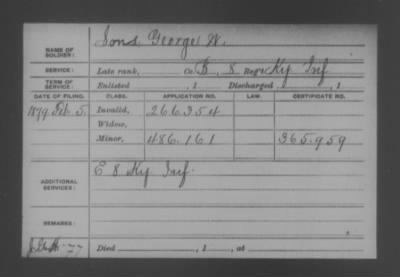 NAME OF SOLDIER: Sons George W.
SERVICE: Late rank, Co. B, 8 Reg't Ky Inf
TERM OF SERVICE: Enlisted , 1 Discharged , 1
DATE OF FILING. CLASS. APPLICATION NO. LAW. CERTIFICATE NO.
1879 Feb. 5. Invalid, 266354
Widow,
Minor, 486.161 365.959
ADDITIONAL SERVICES: E 8 Ky Inf.
REMARKS:
Died , 1 , at